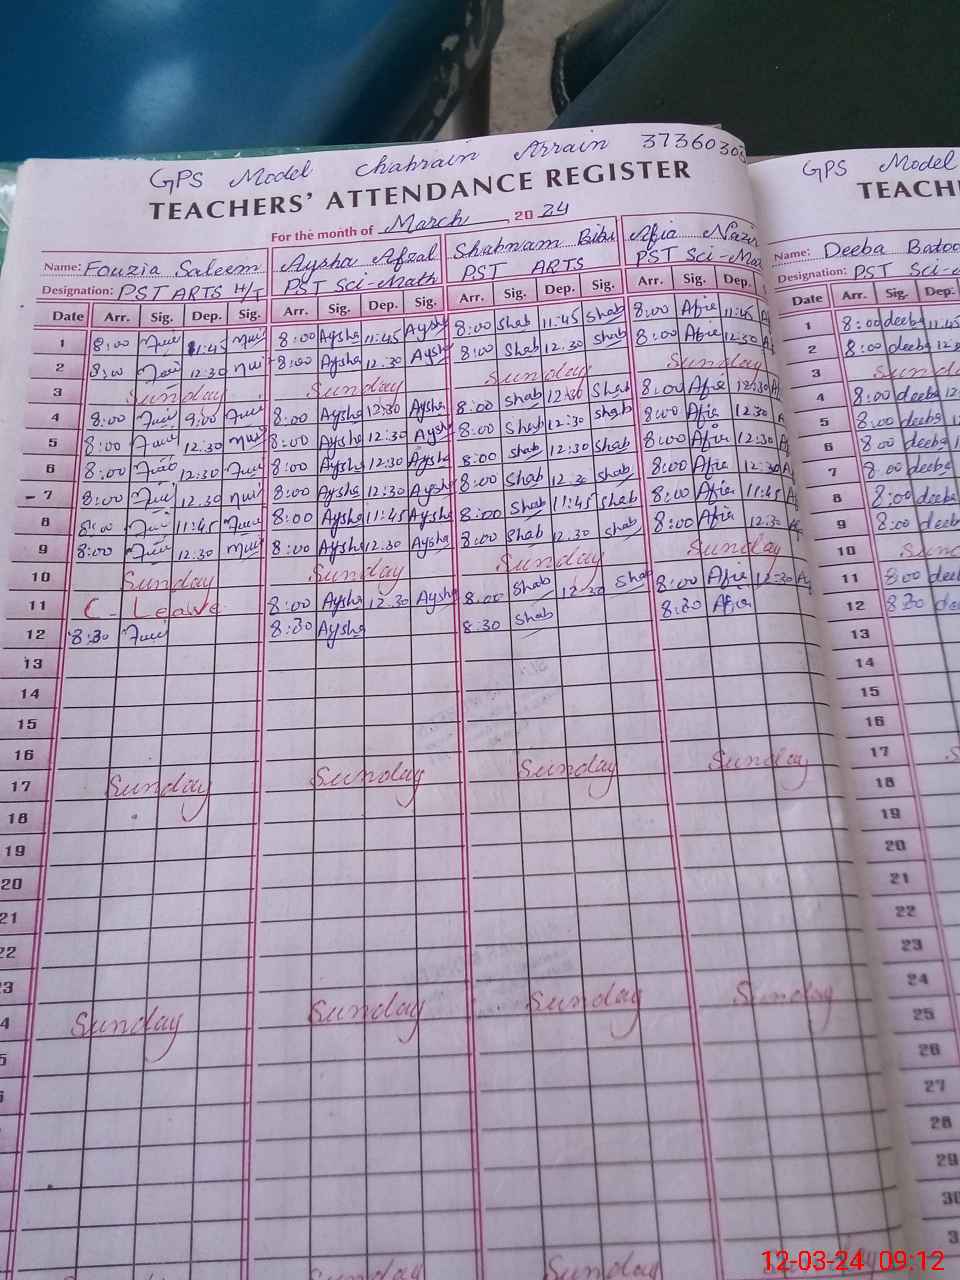 GPS Model Chahrain Arrain 3736030
GPS Model
TEACHERS' ATTENDANCE REGISTER
TEACH
For the month of March 20 24
Name: Fouzia Saleem Aysha Afzal Shabnam Bibi Afia Nazir Name: Deeba
Designation: PST ARTS H/T PST Sci-Math PST ARTS PST Sci-Ma Designation: PST Sci-
Date Arr. Sig. Dep. Sig. Arr. Sig. Dep. Sig. Arr. Sig. Dep. Sig. Arr. Sig. Dep. Date Arr. Sig. Dep.
1 8:00 11:45 8:00 Aysha 11:45 Aysha 8:00 Shab 11:45 Shab 8:00 Afia 11:45 1 8:00 deeba 11:45
2 8:00 12.30 8:00 Aysha 12.30 Aysh 8:00 Shab 12.30 Shab 8:00 Afia 12:30 2 8:00 deeba
3 Sunday Sunday Sunday Sunday 3
4 8:00 9:00 8:00 Aysha 12:30 Aysha 8:00 Shab 12:30 Shab 8:00 Afia 12:30 4 8:00 deeba 12
5 8:00 12.30 8:00 Aysha 12:30 Aysha 8:00 Shab 12:30 Shab 8:00 Afia 12:30 5 8:00 deeba
6 8:00 12:30 8:00 Aysha 12:30 Aysha 8:00 Shab 12:30 Shab 8:00 Afia 12:30 6 8:00 deeba
7 8:00 12.30 8:00 Aysha 12:30 Aysha 8:00 Shab 12.30 Shab 8:00 Afia 12:30 7 8:00 deeba
8 8:00 11:45 8:00 Aysha 11:45 Aysha 8:00 Shab 11:45 Shab 8:00 Afia 11:45 8 8:00 deeba
9 8:00 12.30 8:00 Aysha 12.30 Aysha 8:00 Shab 12.30 Shab 8:00 Afia 12.30 9 8:00 deeb
10 Sunday Sunday Sunday Sunday 10
11 C-Leave 8:00 Aysha 12.30 Aysha 8:00 Shab 12.30 Shab 8:00 Afia 12:30 11 8:00 deeb
12 8:30 8:30 Aysha 8:30 Shab 8:30 Afia 12 8:30
13 13
14 14
15 15
16 16
17 Sunday Sunday Sunday Sunday 17
18 18
19 19
20 20
21 21
22 22
23
Sunday Sunday Sunday Sunday 24
25
26
27
28
29
30
Sunday Sunday
12-03-24 09:12